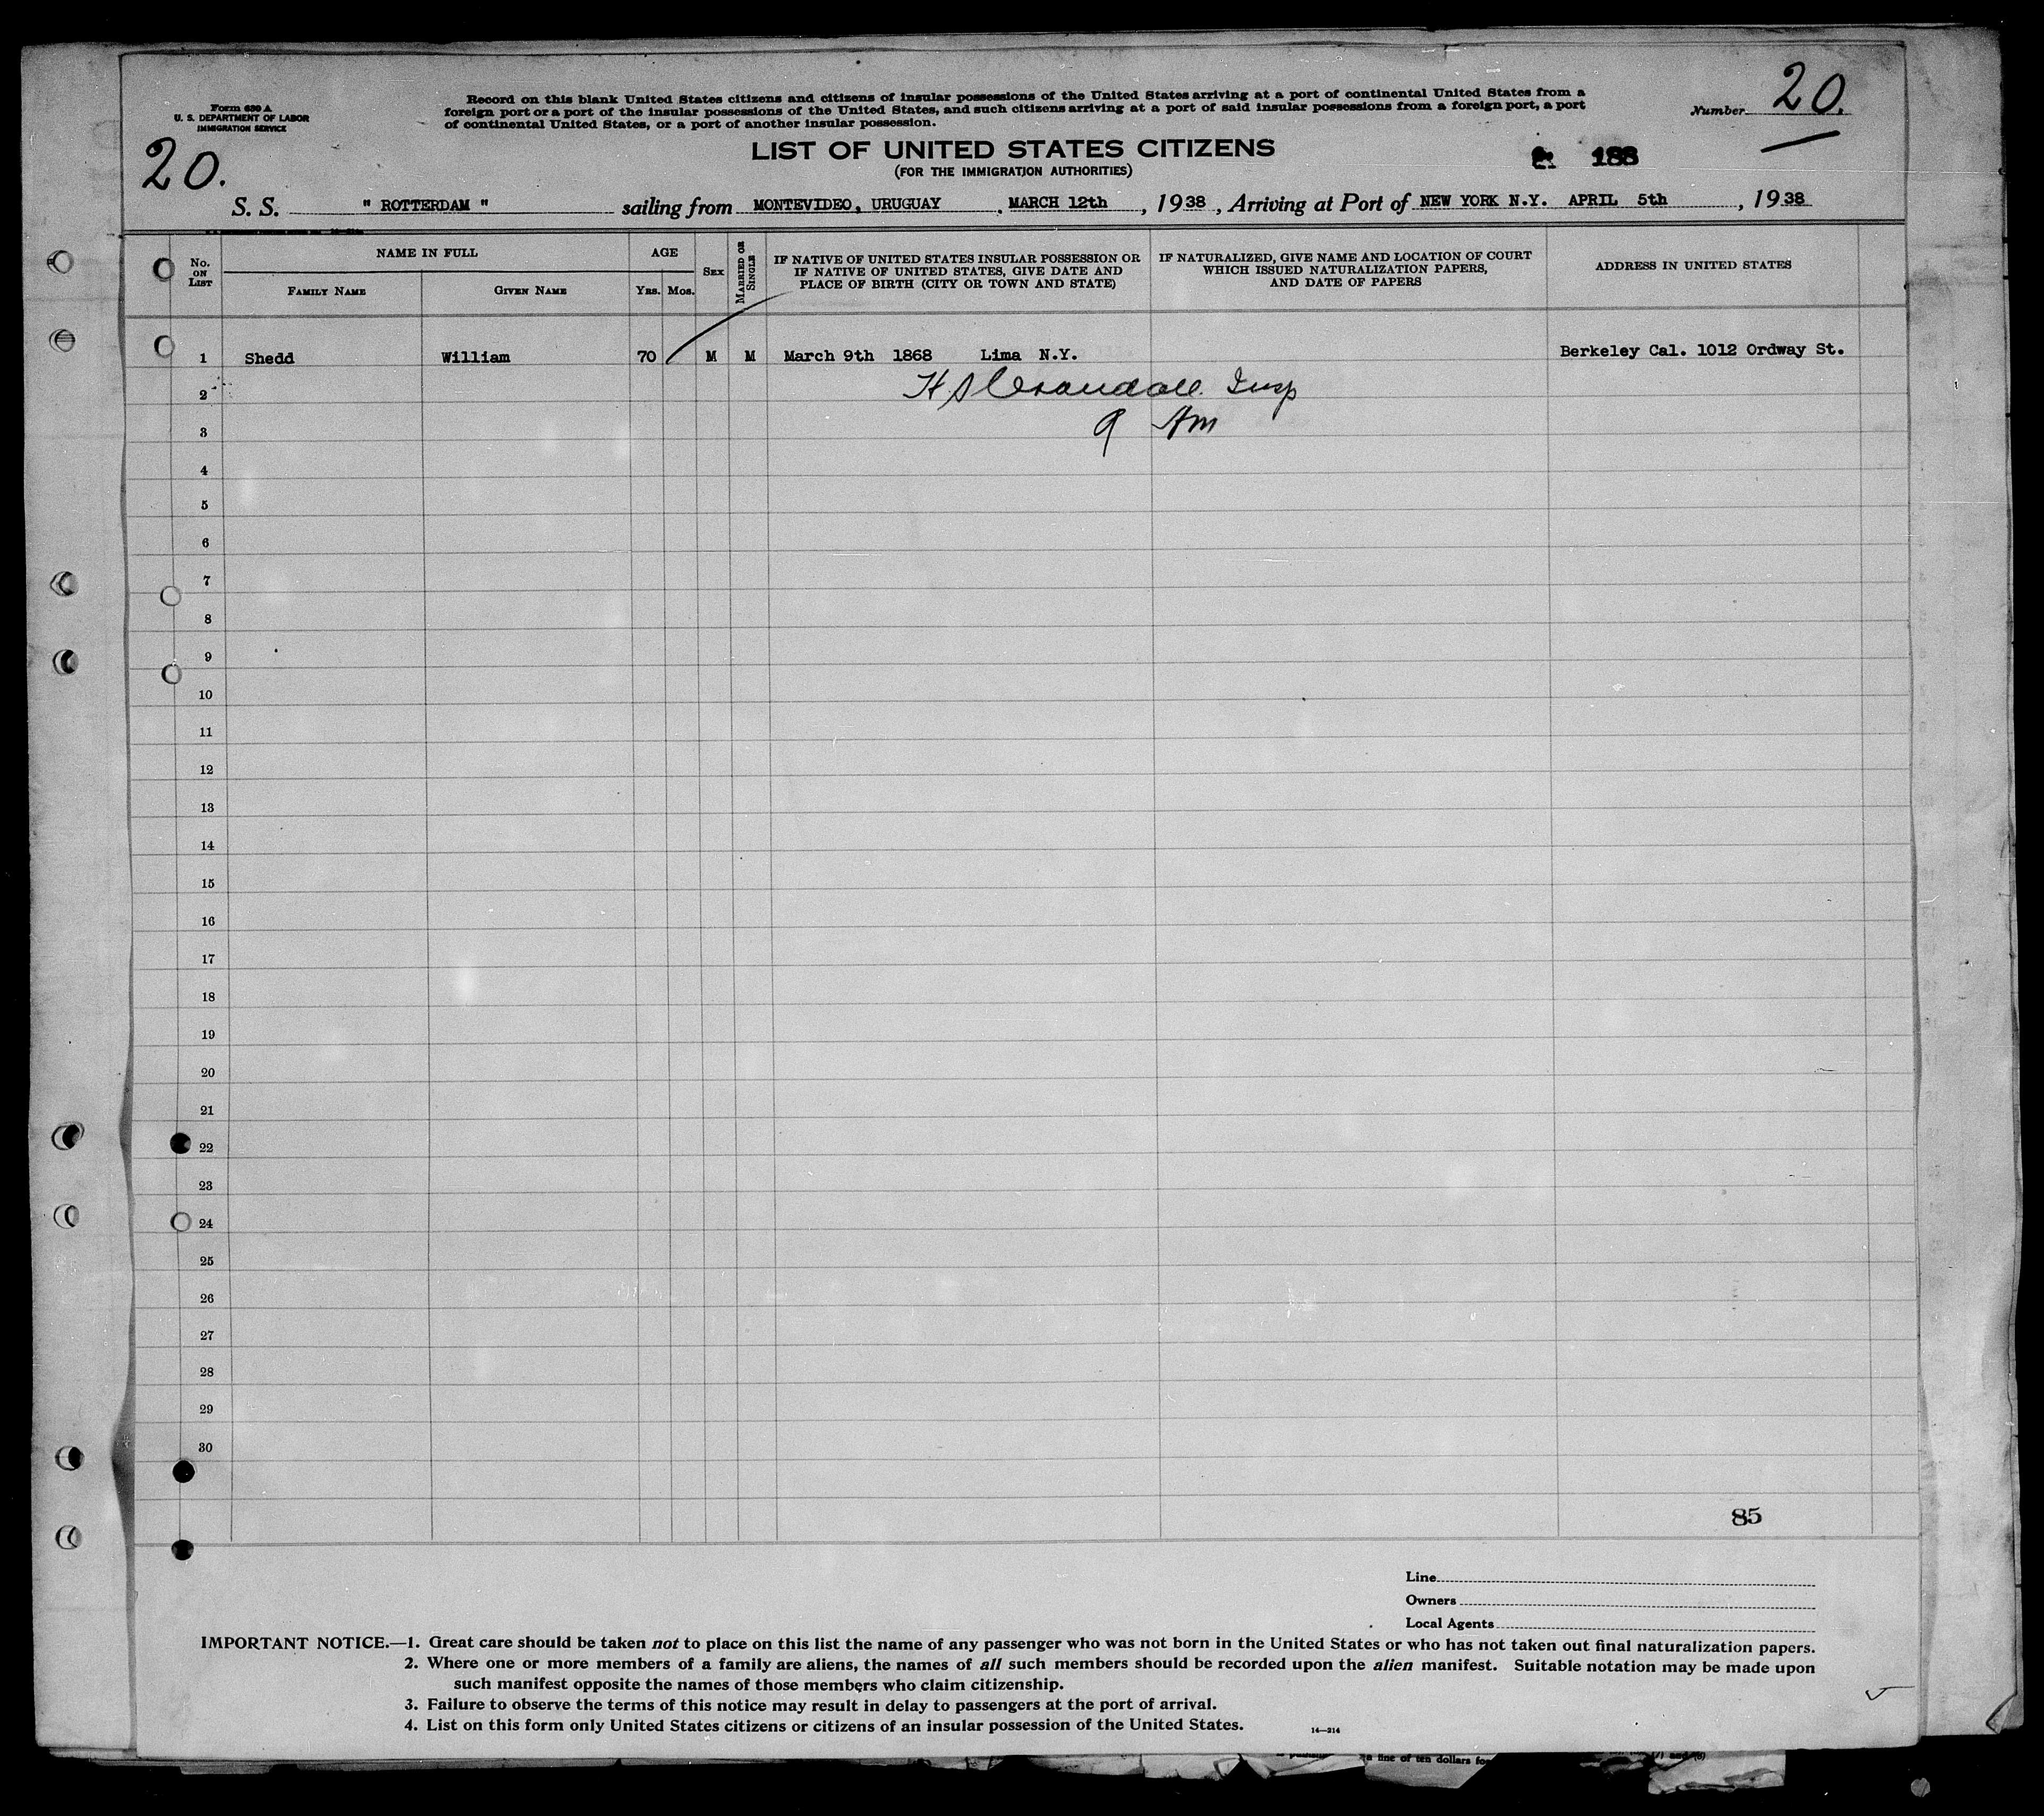 Form 630 A
U. S. DEPARTMENT OF LABOR
IMMIGRATION SERVICE
Record on this blank United States citizens and citizens of insular possessions of the United States arriving at a port of continental United States from a
foreign port or a port of the insular possessions of the United States, and such citizens arriving at a port of said insular possessions from a foreign port, a port
of continental United States, or a port of another insular possession.
Number 20.
20.
LIST OF UNITED STATES CITIZENS
(FOR THE IMMIGRATION AUTHORITIES)
188
S. S. " ROTTERDAM " sailing from MONTEVIDEO, URUGUAY , MARCH 12th , 1938 , Arriving at Port of NEW YORK N.Y. APRIL 5th , 1938
No. ON LIST
NAME IN FULL
FAMILY NAME
GIVEN NAME
AGE
YRS. MOS.
SEX
MARRIED OR SINGLE
IF NATIVE OF UNITED STATES INSULAR POSSESSION OR
IF NATIVE OF UNITED STATES, GIVE DATE AND
PLACE OF BIRTH (CITY OR TOWN AND STATE)
IF NATURALIZED, GIVE NAME AND LOCATION OF COURT
WHICH ISSUED NATURALIZATION PAPERS,
AND DATE OF PAPERS
ADDRESS IN UNITED STATES
1 Shedd William 70 M M March 9th 1868 Lima N.Y. Berkeley Cal. 1012 Ordway St.
2 H S Crandall Insp
3 9 Am
4
5
6
7
8
9
10
11
12
13
14
15
16
17
18
19
20
21
22
23
24
25
26
27
28
29
30
85
Line
Owners
Local Agents
IMPORTANT NOTICE.—1. Great care should be taken not to place on this list the name of any passenger who was not born in the United States or who has not taken out final naturalization papers.
2. Where one or more members of a family are aliens, the names of all such members should be recorded upon the alien manifest. Suitable notation may be made upon
such manifest opposite the names of those members who claim citizenship.
3. Failure to observe the terms of this notice may result in delay to passengers at the port of arrival.
4. List on this form only United States citizens or citizens of an insular possession of the United States.
14—214
a fine of ten dollars for